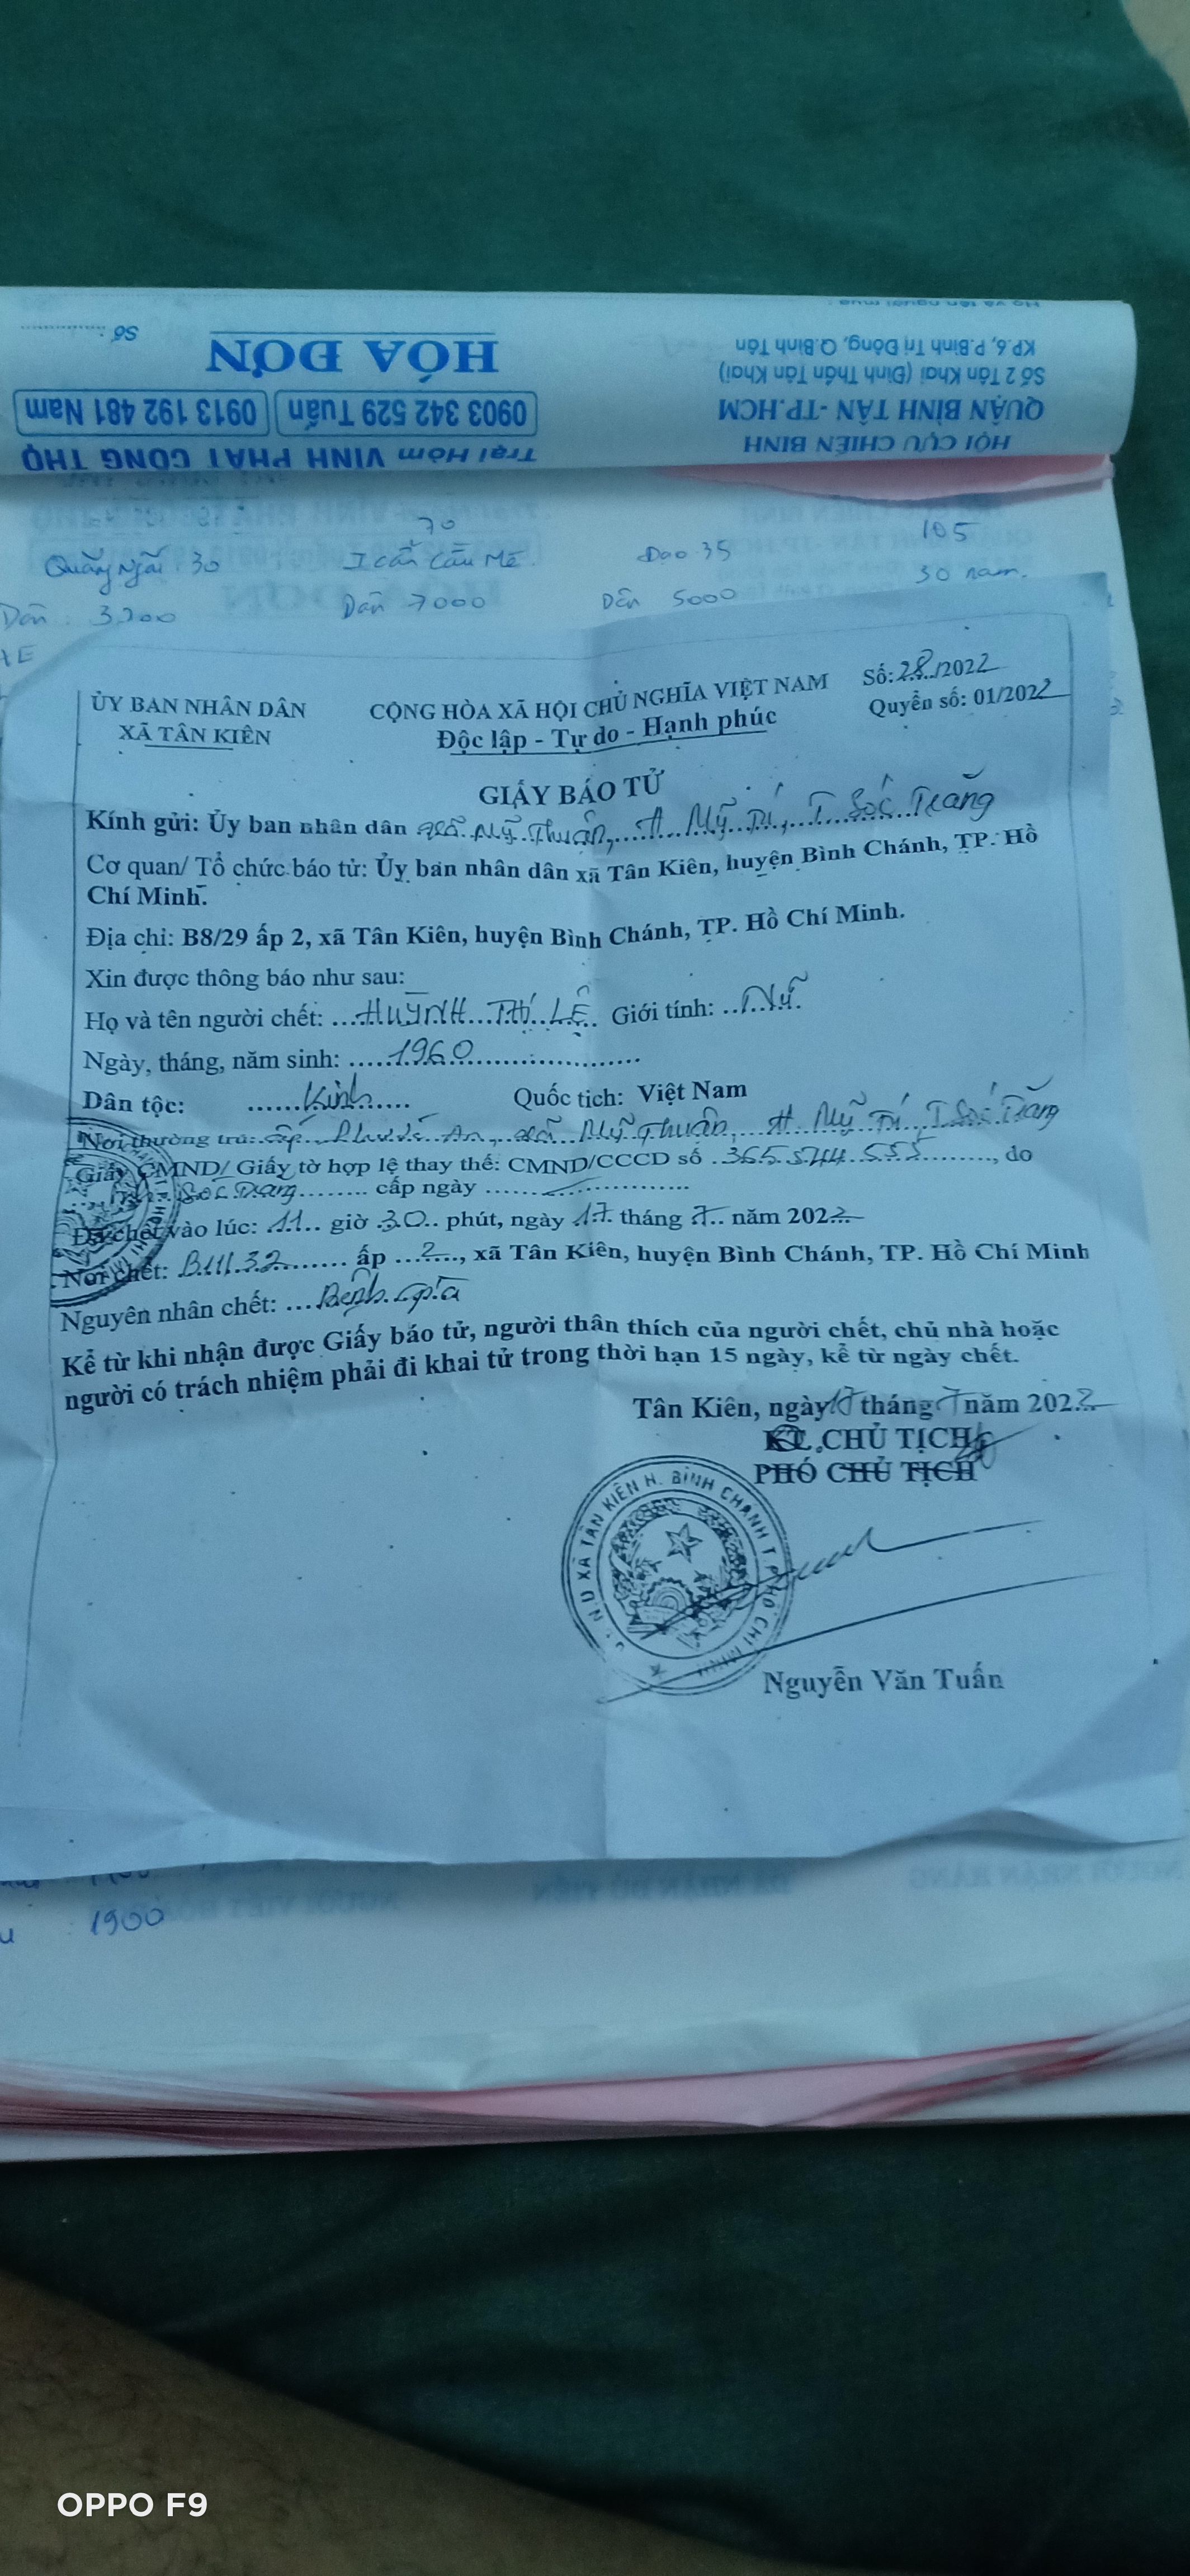 Họ và tên người mua
KP.6, P.Bình Trị Đông, Q.Bình Tân
Số 2 Tân Khai (Đình Thần Tân Khai)
QUẬN BÌNH TÂN -TP.HCM
HỘI CỰU CHIẾN BINH
Số :
HÓA ĐƠN
0903 342 529 Tuấn 0913 192 481 Nam
Trại Hòm VINH PHÁT CÔNG THỌ
70
105
Quãng Ngãi 30
Đạo 35
30 nam.
Dẫn : 3.200
Dẫn 7000
Dẫn 5000
XE
ỦY BAN NHÂN DÂN
XÃ TÂN KIÊN
CỘNG HÒA XÃ HỘI CHỦ NGHĨA VIỆT NAM
Độc lập - Tự do - Hạnh phúc
Số: 28/2022
Quyển số: 01/2022
GIẤY BÁO TỬ
Kính gửi: Ủy ban nhân dân xã Mỹ Thuận, H Mỹ Tú, T Sóc Trăng
Cơ quan/ Tổ chức báo tử: Ủy ban nhân dân xã Tân Kiên, huyện Bình Chánh, TP. Hồ
Chí Minh.
Địa chỉ: B8/29 ấp 2, xã Tân Kiên, huyện Bình Chánh, TP. Hồ Chí Minh.
Xin được thông báo như sau:
Họ và tên người chết: HUỲNH THỊ LỆ Giới tính: Nữ
Ngày, tháng, năm sinh: 1960
Dân tộc: Kinh Quốc tịch: Việt Nam
Nơi thường trú: ấp Phước An, xã Mỹ Thuận, H Mỹ Tú, T Sóc Trăng
Giấy CMND/ Giấy tờ hợp lệ thay thế: CMND/CCCD số 365.544.555, do
Sóc Trăng cấp ngày
Đã chết vào lúc: 11 giờ 30 phút, ngày 17 tháng 7 năm 2022
Nơi chết: ấp 2, xã Tân Kiên, huyện Bình Chánh, TP. Hồ Chí Minh
Nguyên nhân chết: Bệnh già
Kể từ khi nhận được Giấy báo tử, người thân thích của người chết, chủ nhà hoặc
người có trách nhiệm phải đi khai tử trong thời hạn 15 ngày, kể từ ngày chết.
Tân Kiên, ngày 17 tháng 7 năm 2022
CHỦ TỊCH
PHÓ CHỦ TỊCH
U.B.N.D XÃ TÂN KIÊN H. BÌNH CHÁNH T.PHỐ HỒ CHÍ MINH
Nguyễn Văn Tuấn
1900
OPPO F9